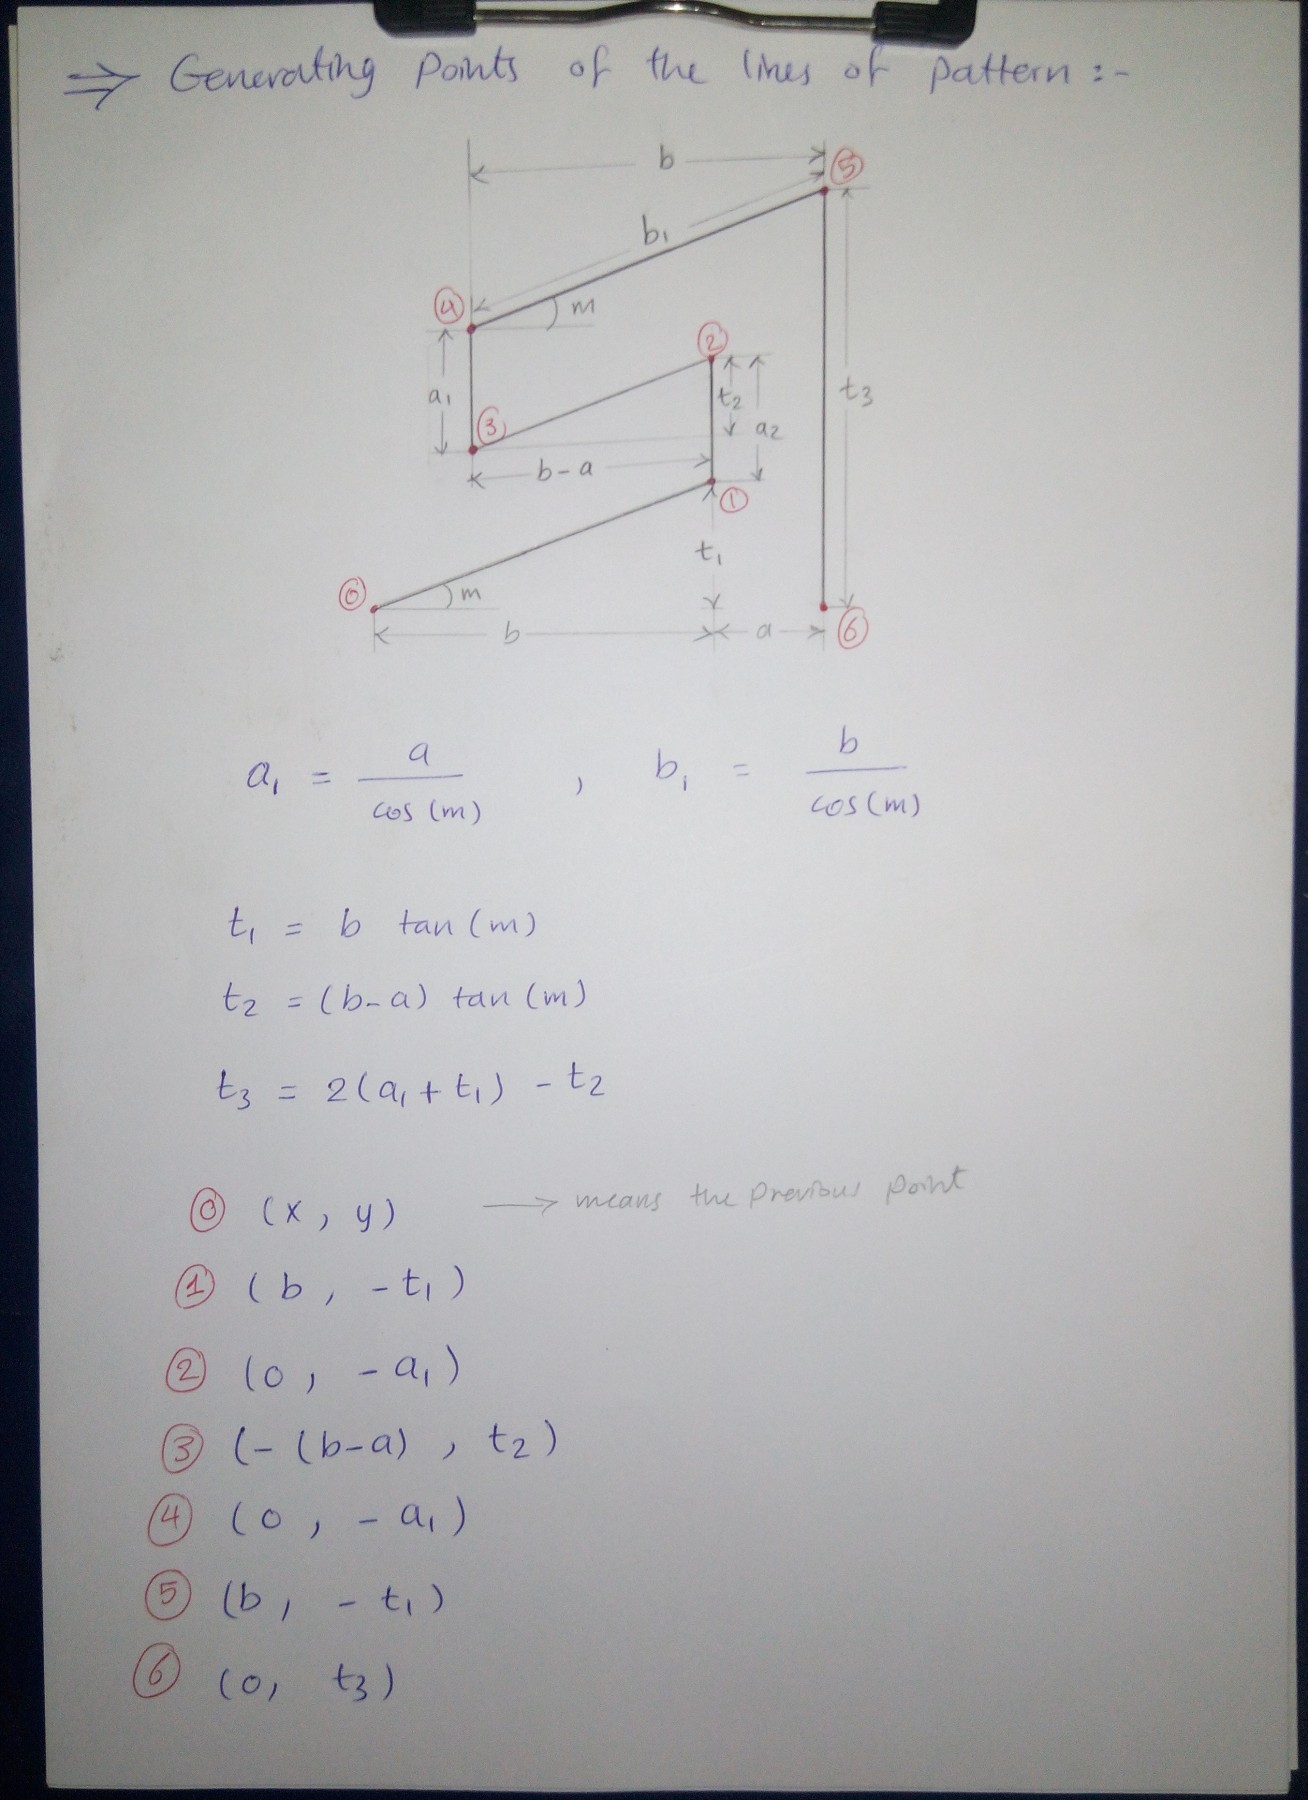 ⇒ Generating Points of the lines of pattern :-
b
⑤
b₁
④
m
②
a₁
t₂
t₃
③
a₂
b-a
①
t₁
⓪
m
b
a
⑥
a₁ = a / cos (m) , b₁ = b / cos (m)
t₁ = b tan (m)
t₂ = (b-a) tan (m)
t₃ = 2(a₁ + t₁) - t₂
⓪ (x, y) → means the previous point
① (b, -t₁)
② (0, -a₁)
③ (-(b-a), t₂)
④ (0, -a₁)
⑤ (b, -t₁)
⑥ (0, t₃)